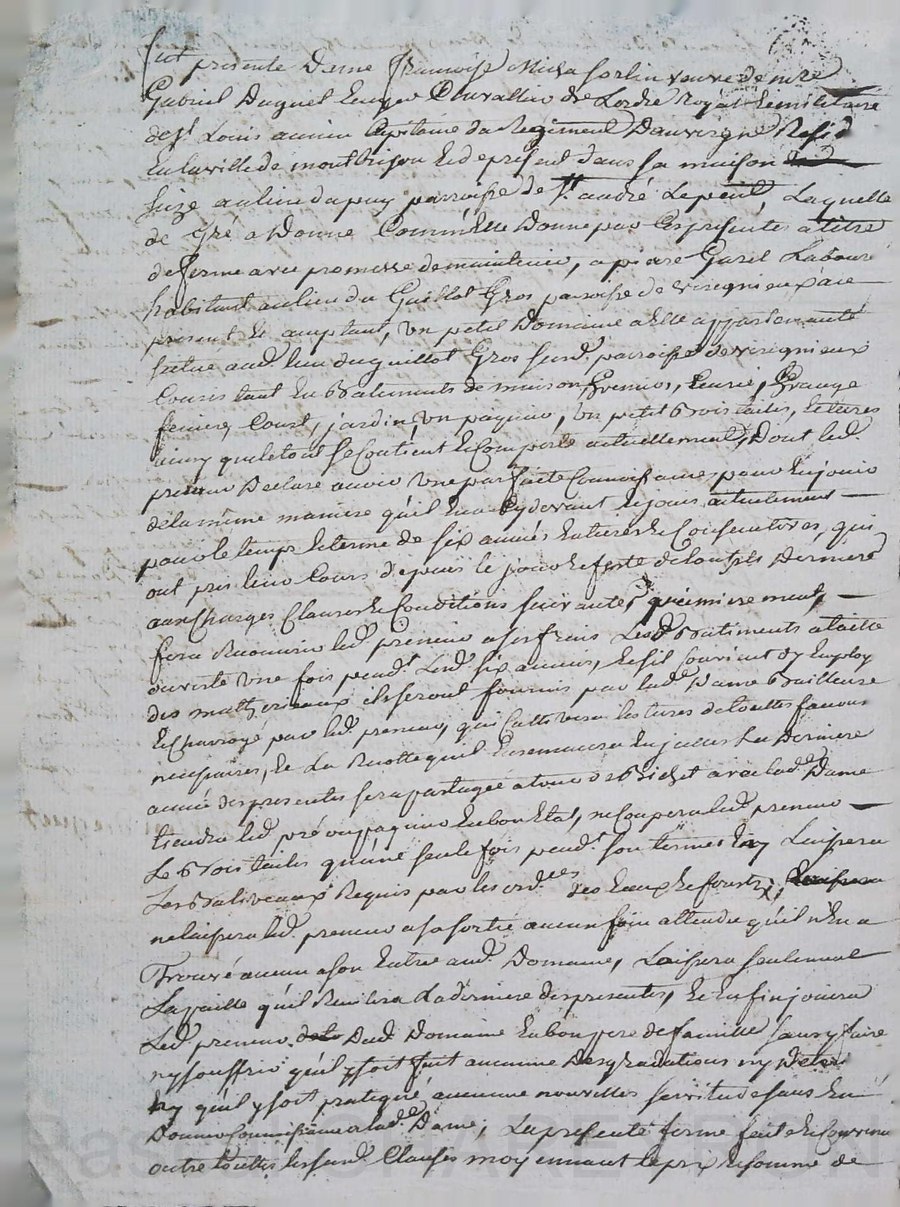 fut presente Dame françoise veuve de mre
Gabriel Duguet Ecuyer Chevallier de Lordre Royal Et militaire
de st Louis ancien Capitaine du Regiment Dauvergne Resid
En la ville de montbrison Et de present dans sa maison
size au lieu du puy parroisse de st andré Le , Laquelle
de Gré a Donné Comm'Elle Donne par Ces presentes a titre
de ferme avec promesse de maintenir, a pierre Garel Laboure
habitant au lieu du Guillot Gros parroisse de verignieux ace
present Et acceptant, Un petit Domaine a Elle appartenant
scitué aud. lieu du guillot Gros susd. parroisse de verignieux
Consistant En Batiments de maison Greniers, Ecurie, Grange
feniere, Court, jardin, Un paquier, Un petit Bois tailes, Et terres
ainsy que le tout se Contient Et Comporte actuellement, Dont led.
preneur Declare avoir Une parfaite Connoissance pour En jouir
de la meme maniere qu'il En a Cy devant Et jouis actuellement
pour le temps Et terme de six années Entieres Et Consecutives, qui
ont pris leur Cours depuis le jour Et feste de toussts Derniere
aux Charges Clauses Et Conditions suivantes, premierement,
fera Recouvrir led. preneur a ses frais Lesd. Batiments a taille
ouverte Une fois pendt Lesd. six années, Et s'il Convient d'y Employ
des mattereiaux ils seront fournis par lad. Dame Bailleuse
Et Charroyé par led. preneur, qui Cultivera les terres de toutes facons
necessaires, Et La Recolte quil Ensemencera En la Derniere
année des presentes sera partagée avec lad. Dame
tiendra led. pré ou paquier En bon Etat, ne Coupera led. preneur
Le Bois tailes qu'une seule fois pendt son terme Et y Laissera
Les Baliveaux Requis par les ordces des Eaux Et forests,
ne laissera led. preneur a sa sortie aucun foin attendu qu'il n'En a
Trouvé aucun a son Entrée aud. Domaine, Laissera seulement
La paille qu'il Recuilira La derniere des presentes, Et Enfin jouira
Led. preneur Dud. Domaine En bon pere de famille sans y faire
ny souffrir qu'il y soit fait aucunne Desgradations
ny qu'il y soit pratiqué aucunne nouvelles servitude sans En
Donner Connoissance a lad. Dame, La presente ferme fait Et Convenu
outre toutes les susd. Clauses moyennant le prix Et somme de